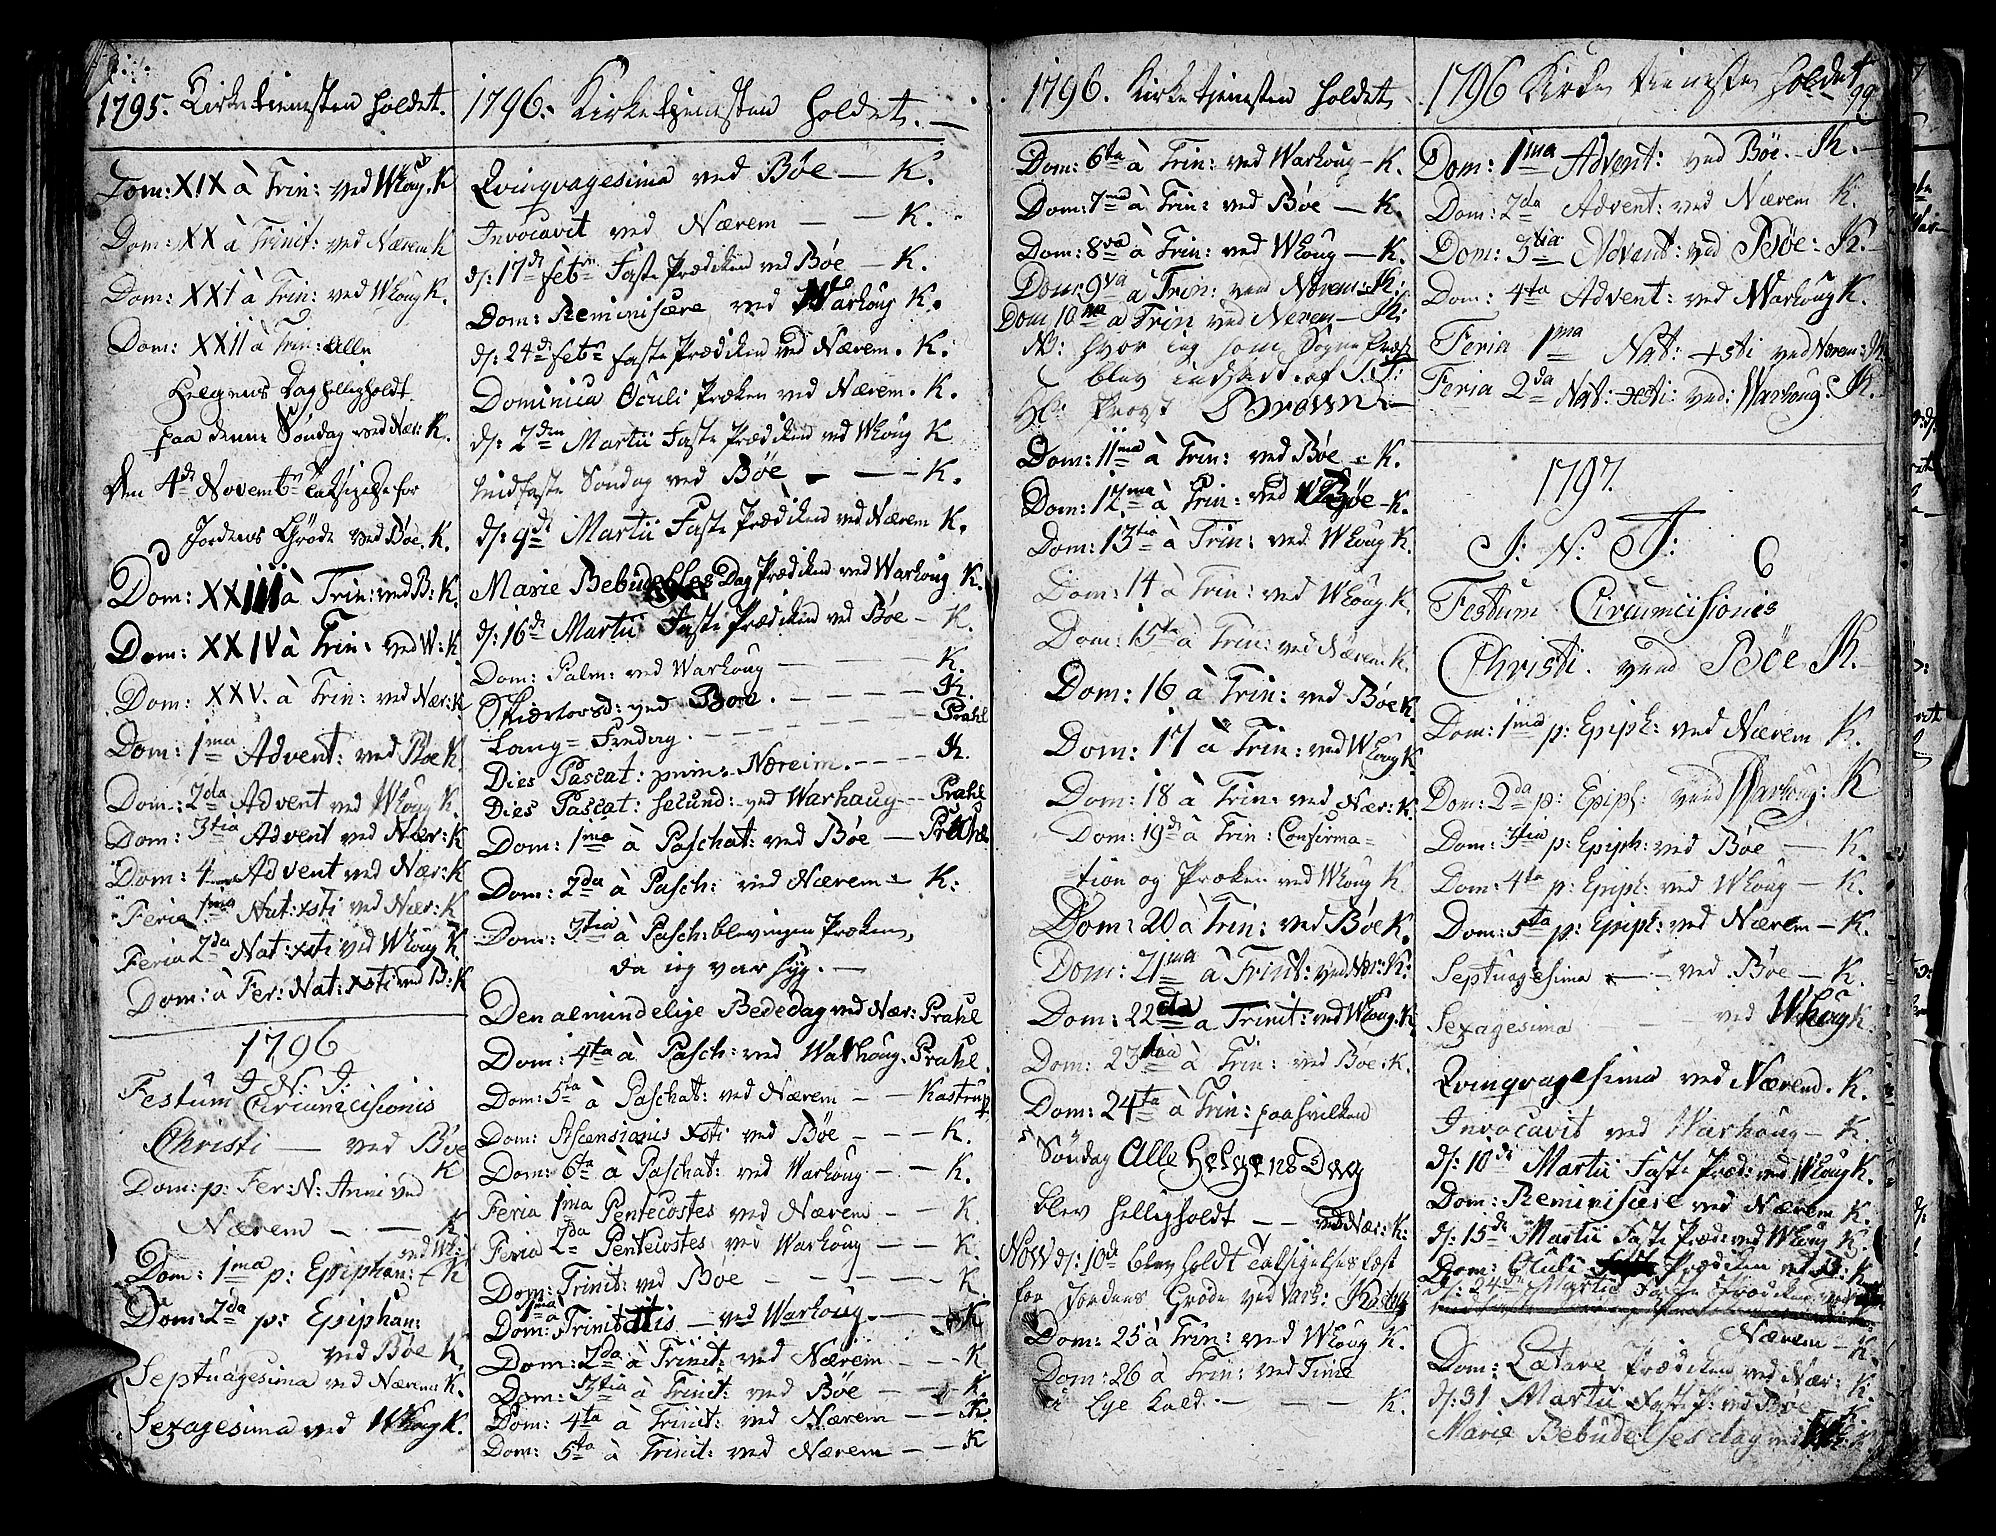 1795. Kirketienesten holdet.
Dom: XIX à Trin: ved Whoug. K
Dom: XX à Trinit: ved Nærem K
Dom: XXI à Trin: ved Whoug K.
Dom: XXII à Trin: Alle
Helgens Dag helligholdt
paa denne Söndag ved Nær: K.
Den 4de Novembr Taksigelse for
Jordens Gröde ved Böe. K.
Dom: XXIII à Trin: ved B: K.
Dom: XXIV à Trin: ved W: K.
Dom: XXV. à Trin: ved Nær: K
Dom: 1ma Advent: ved Böe K
Dom: 2da Advent ved Whoug K.
Dom: 3tia Advent ved Nær: K
Dom: 4 Advent ved Nær: K
Feria 1ma Nat: xsti ved Nær: K
Feria 2da Nat: xsti ved Whoug K.
Dom: à Fer: Nat: xsti ved B: K
1796
I. N. J:
Festum Circumcisionis
Christi — ved Böe
K
Dom: p: Fer: N: Anni ved
Nærem — — K
ved Wh:
Dom: 1ma p: Epiphan: — K
Dom: 2da p: Epiphan:
ved Böe K
Septuagesima ved Nærem K.
Sexagesima ved Whoug K.
1796. Kirketjenesten holdet. —
Qvinqvagesima ved Böe — K.
Invocavit ved Nærem — — K.
d: 17de febr Faste Prædiken ved Böe — K.
Dom: Reminiscere ved Warhoug K.
d: 24de febr faste Prædiken ved Nærem. K.
Dominica Oculi Præken ved Nærem. K.
d: 2den Martii Faste Prædiken ved Whoug K
Midfaste Söndag ved Böe — — K.
d: 9de Martii Faste Prædiken ved Nærem K.
Marie Bebudelses Dag Prædiken ved Warhoug K.
d: 16de Martii Faste Prædiken ved Böe — K.
Dom: Palm: ved Warhoug — — — K.
Skiærtorsd: ved Böe. — — — K.
Lang=Fredag. — — — Prahl
Dies Pascat: prim: Næreim. — — K.
Dies Pascat: secund: ved Warhaug — Prahl
Dom: 1ma à Paschat: ved Böe — Prahl
Dom: 2da à Pasch: ved Nærem — K.
Dom: 3tia à Pasch: blev ingen Præken,
da ieg var syg. —
Den almindelige Bededag ved Nær: Prahl
Dom: 4ta à Pasch: ved Warhoug. Prahl
Dom: 5ta à Paschat: ved Nærem — — Kastrup
Dom: Ascensionis xsti ved Böe — — K.
Dom: 6ta à Paschat: ved Warhoug — — K.
Feria 1ma Pentecostes ved Nærem — — K.
Feria 2da Pentecostes ved Warhoug — — K.
Dom: Trinit: ved Böe — — — — K
Dom: 1ma à Trinitatis — ved Warhoug. — — K
Dom: 2da à Trinit: ved Nærem — — K
Dom: 3tia à Trinit: ved Böe — — K.
Dom: 4ta à Trinit: ved Nærem — — K.
Dom: 5ta à Trinit: ved Nærem — — K
1796. Kirketjenesten holdet
Dom: 6ta à Trin: ved Warhoug — K.
Dom: 7ma à Trin: ved Böe — K.
Dom: 8va à Trin: ved Whoug — K.
Dom: 9va à Trin: ved Nærem — K:
Dom 10ma à Trin ved Nærem — K:
NB: hvor ieg som Sogne Præst
blev indsadt af S: T:
Hr: Provst Brown —
Dom: 11ma à Trin: ved Böe — K.
Dom: 12ma à Trin: ved Böe — K.
Dom: 13tia à Trin: ved Whoug K.
Dom: 14 à Trin: ved Whoug. K.
Dom: 15ta à Trin: ved Nærem K.
Dom: 16 à Trin: ved Böe K.
Dom: 17 à Trin: ved Whoug K.
Dom: 18 à Trin: ved Nær: K.
Dom: 19de à Trin: Confirma=
=tion og Præken ved Whoug K.
Dom: 20 à Trin: ved Böe K.
Dom: 21ma à Trinit: ved Nær: K:
Dom: 22da à Trinit: ved Whoug. K.
Dom: 23tia à Trin: ved Böe: K.
Dom: 24ta à Trin: paa hvilken
Söndag Alle Helgens Dag
blev helligholdt — — ved Nær: K:
Nov d: 10de blev holdt Taksigelses fest
for Jordens Gröde ved Varh:
Dom: 25 à Trin: ved Whoug K.
Dom: 26 à Trin: ved Time
i Lye Kald. — — — K.
1796 Kirke tieneste holdet
99
Dom: 1ma Advent: ved Böe. — K. —
Dom: 2da Advent: ved Nærem K.
Dom: 3tia Advent: ved Böe: K. —
Dom: 4ta Advent: ved Warhoug K.
Feria 1ma Nat: xsti ved Nærem: K.
Feria 2da Nat: xsti: ved: Warhoug: K.
1797.
I: N: J:
Festum Circumcisionis
Christi. ved Böe K.
Dom: 1ma p: Epiph: ved Nærem K.
Dom: 2da p: Epiph: ved Warhoug: K
Dom: 3tia p: Epiph: ved Böe — K.
Dom: 4ta p: Epiph: ved Whoug — K.
Dom: 5ta p: Epiph: ved Nærem — K.
Septuagesima — — ved Böe — K.
Sexagesima — — ved Whoug K.
Qvinqvagesima ved Nærem. K.
Invocavit ved Warhoug — K.
d: 10de Martii Faste Præd: ved Whoug K.
Dom: Reminiscere ved Nærem K.
d: 15de Martii Faste Præd: ved Whoug K.
Dom: Oculi Prædiken ved B: K.
d: 24de Martii Faste Prædiken ved
Nærem — K.
Dom: Lætare Prædiken ved Nær: K.
d: 31 Martii Faste P: ved Böe K
Marie Bebudelses dag ved Wh: K